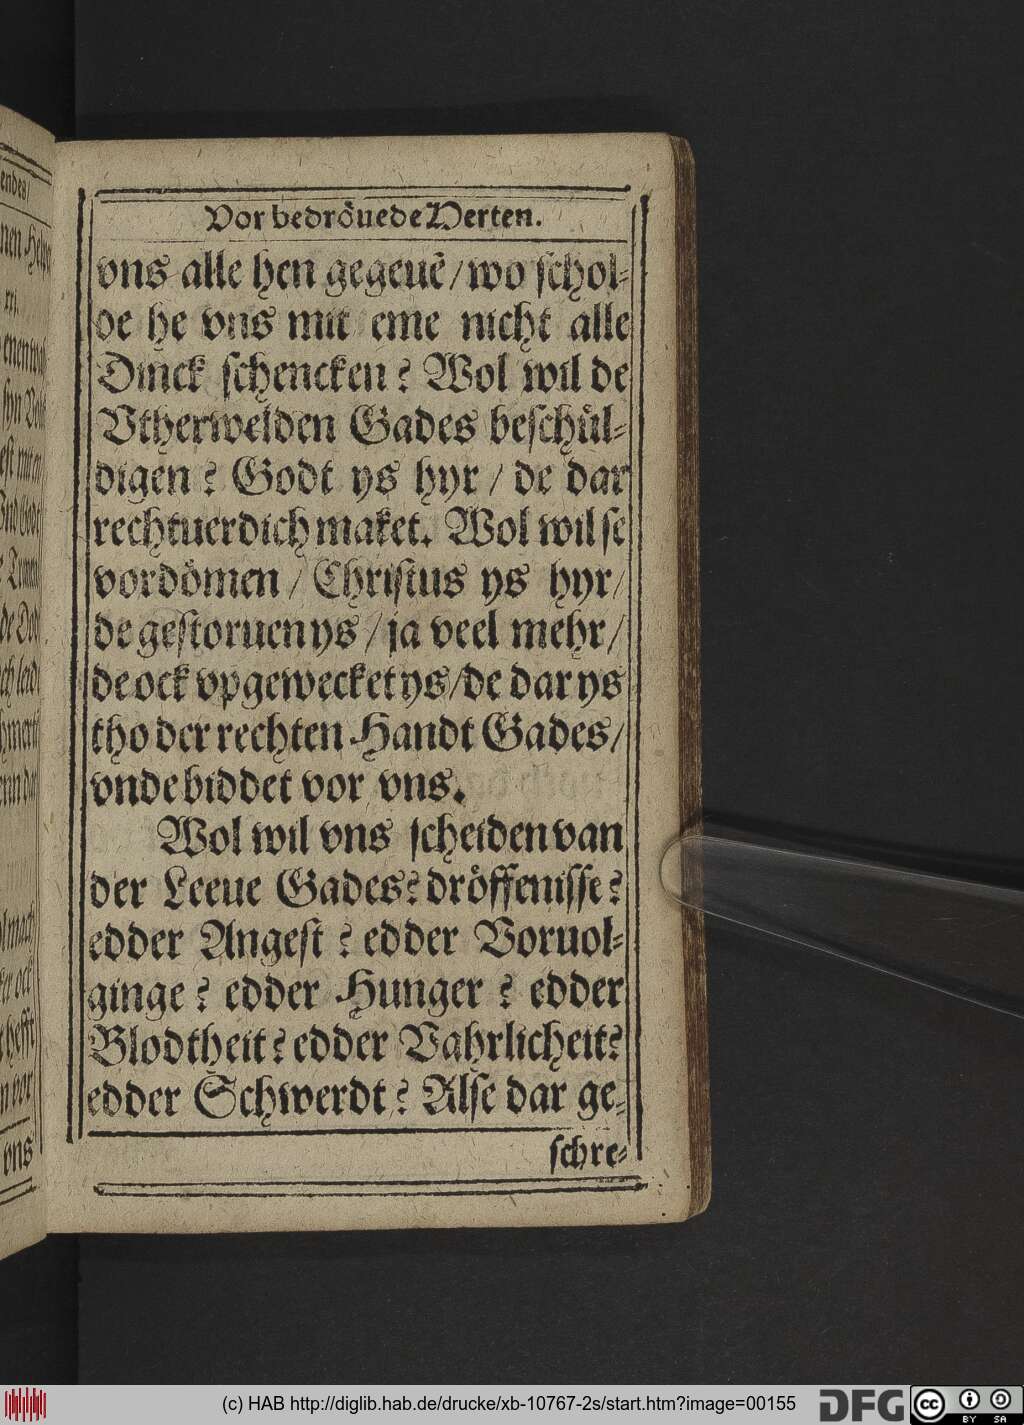 endes/
Vor bedröuede Herten.
vns alle hen gegeuē/wo schol-
de he vns mit eme nicht alle
Dinck schencken? Wol wil de
Vtherwelden Gades beschül-
digen? Godt ys hyr/de dar
rechtuerdich maket. Wol wil se
vordömen/Christus ys hyr/
de gestoruen ys/ja veel mehr/
de ock vpgewecket ys/de dar ys
tho der rechten Handt Gades/
vnde biddet vor vns.
Wol wil vns scheiden van
der Leeue Gades? dröffenisse?
edder Angest? edder Voruol-
ginge? edder Hunger? edder
Blodtheit? edder Vahrlicheit?
edder Schwerdt? Alse dar ge-
schre-
vns
(c) HAB http://diglib.hab.de/drucke/xb-10767-2s/start.htm?image=00155
DFG
cc BY SA